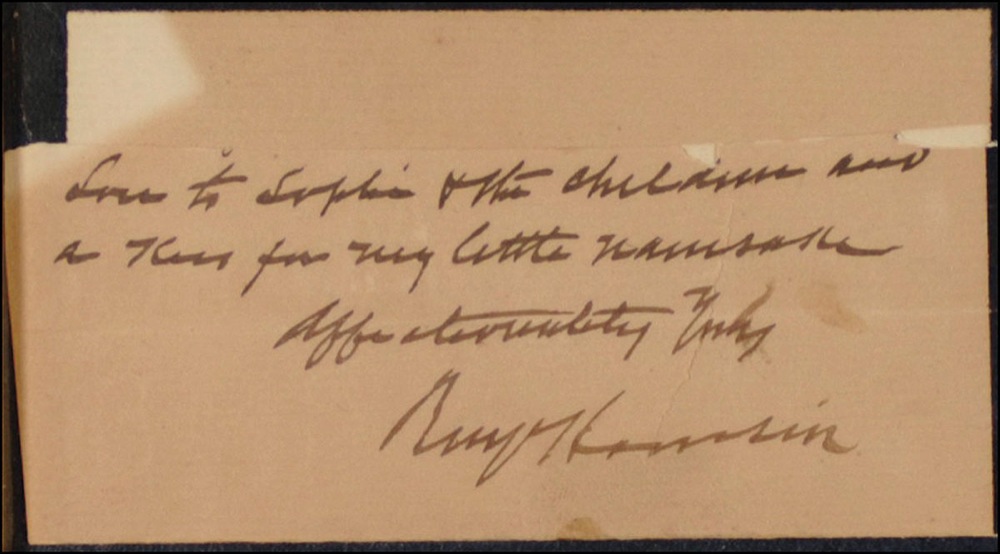 Love to Sophie & the children and
a Kiss for my little namesake
Affectionately Yours
Benj Harrison